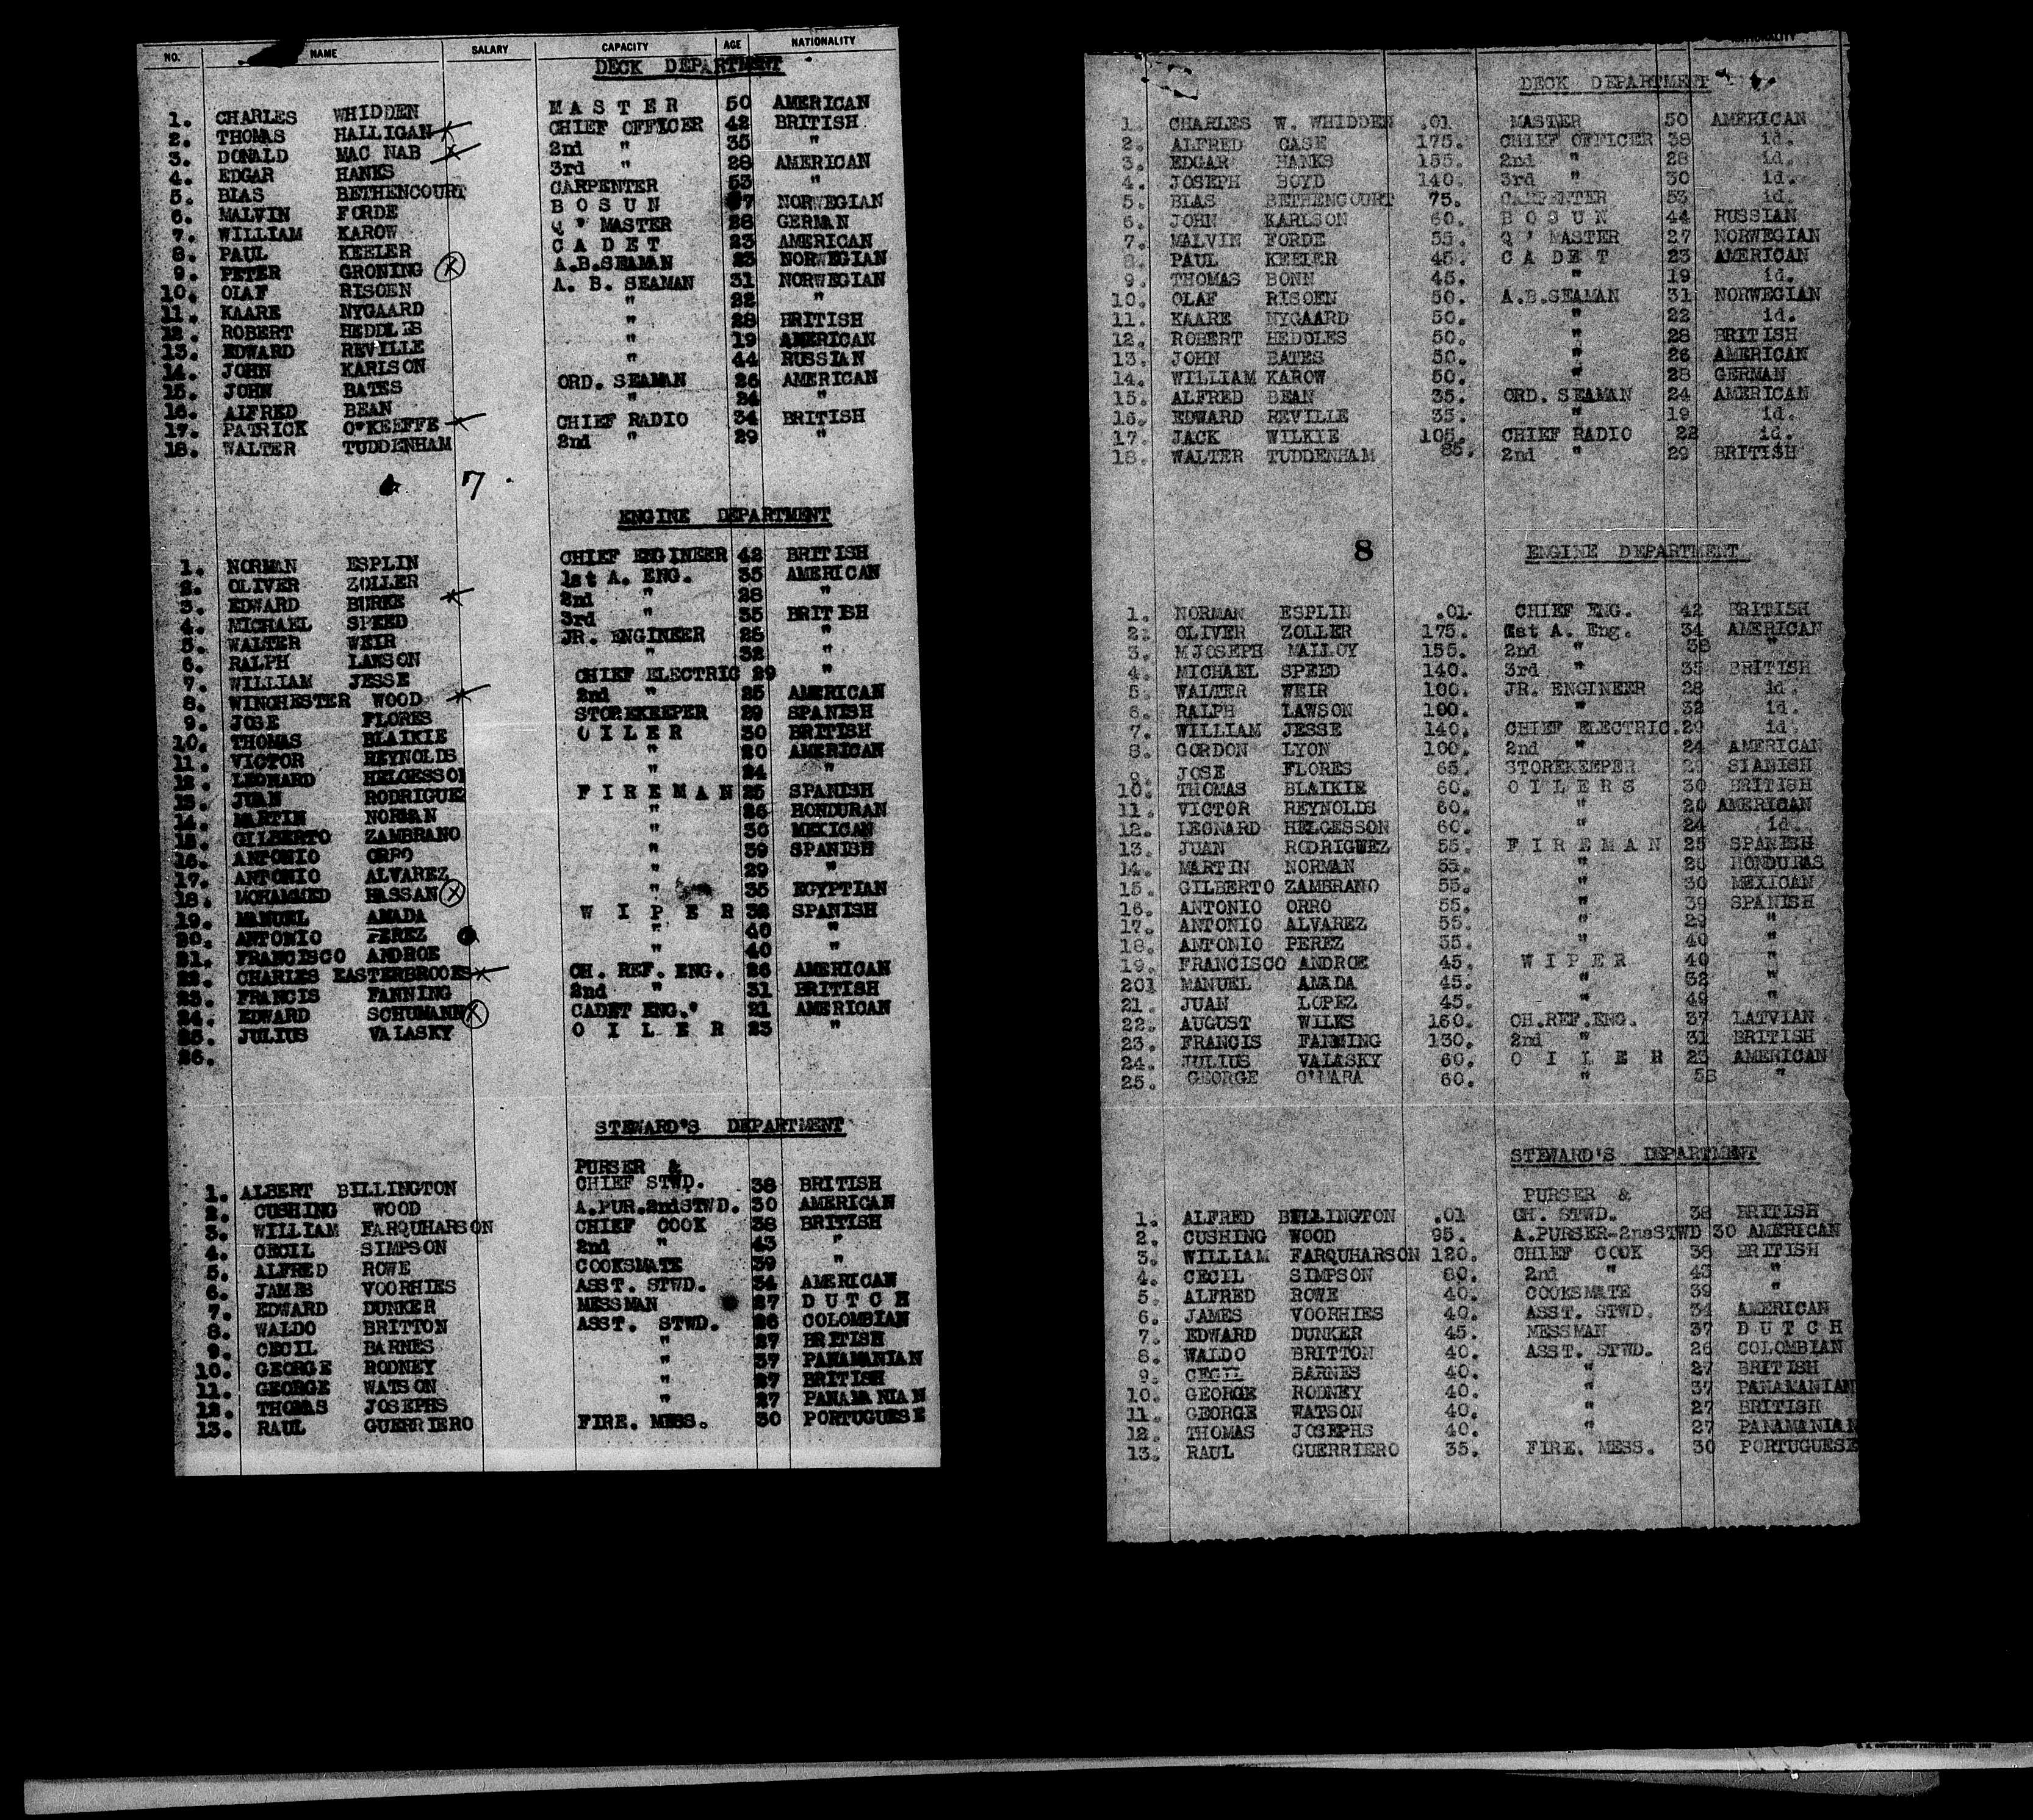 NO. NAME SALARY CAPACITY AGE NATIONALITY
DECK DEPARTMENT
1. CHARLES WHIDDEN M A S T E R 50 AMERICAN
2. THOMAS HALLIGAN CHIEF OFFICER 42 BRITISH
3. DONALD MAC NAB 2nd " 35 "
4. EDGAR HANKS 3rd " 28 AMERICAN
5. BLAS BETHENCOURT CARPENTER 53 "
6. MALVIN FORDE B O S U N 27 NORWEGIAN
7. WILLIAM KAROW Q ' MASTER 28 GERMAN
8. PAUL KEELER C A D E T 23 AMERICAN
9. PETER GRONING A.B.SEAMAN 23 NORWEGIAN
10. OLAF RISOEN A. B. SEAMAN 31 NORWEGIAN
11. KAARE NYGAARD " 22 "
12. ROBERT HEDDLES " 28 BRITISH
13. EDWARD REVILLE " 19 AMERICAN
14. JOHN KARLSON " 44 RUSSIAN
15. JOHN BATES ORD. SEAMAN 26 AMERICAN
16. ALFRED BEAN " 24 "
17. PATRICK O'KEEFFE CHIEF RADIO 34 BRITISH
18. WALTER TUDDENHAM 2nd " 29 "
7
ENGINE DEPARTMENT
1. NORMAN ESPLIN CHIEF ENGINEER 42 BRITISH
2. OLIVER ZOLLER 1st A. ENG. 35 AMERICAN
3. EDWARD BURKE 2nd " 28 "
4. MICHAEL SPEED 3rd " 35 BRITISH
5. WALTER WEIR JR. ENGINEER 28 "
6. RALPH LAWSON " 32 "
7. WILLIAM JESSE CHIEF ELECTRIC 29 "
8. WINCHESTER WOOD 2nd " 25 AMERICAN
9. JOSE FLORES STOREKEEPER 29 SPANISH
10. THOMAS BLAIKIE O I L E R 30 BRITISH
11. VICTOR REYNOLDS " 20 AMERICAN
12. LEONARD HELGESSON " 24 "
13. JUAN RODRIGUEZ F I R E M A N 25 SPANISH
14. MARTIN NORMAN " 26 HONDURAN
15. GILBERTO ZAMBRANO " 30 MEXICAN
16. ANTONIO ORRO " 39 SPANISH
17. ANTONIO ALVAREZ " 29 "
18. MOHAMMED HASSAN " 35 EGYPTIAN
19. MANUEL AMADA W I P E R 32 SPANISH
20. ANTONIO PEREZ " 40 "
21. FRANCISCO ANDROE " 40 "
22. CHARLES EASTERBROOKS CH. REF. ENG. 26 AMERICAN
23. FRANCIS FANNING 2nd " 31 BRITISH
24. EDWARD SCHUMANN CADET ENG." 21 AMERICAN
25. JULIUS VALASKY O I L E R 23 "
26.
STEWARD'S DEPARTMENT
PURSER &
1. ALBERT BILLINGTON CHIEF STWD. 38 BRITISH
2. CUSHING WOOD A.PUR.2ndSTWD. 30 AMERICAN
3. WILLIAM FARQUHARSON CHIEF COOK 38 BRITISH
4. CECIL SIMPSON 2nd " 43 "
5. ALFRED ROWE COOKSMATE 39 "
6. JAMES VOORHIES ASST. STWD. 34 AMERICAN
7. EDWARD DUNKER MESSMAN 37 D U T C H
8. WALDO BRITTON ASST. STWD. 26 COLOMBIAN
9. CECIL BARNES " 27 BRITISH
10. GEORGE RODNEY " 37 PANAMANIAN
11. GEORGE WATSON " 27 BRITISH
12. THOMAS JOSEPHS " 27 PANAMANIAN
13. RAUL GUERRIERO FIRE. MESS. 30 PORTUGUESE
DECK DEPARTMENT
1. CHARLES W. WHIDDEN .01 MASTER 50 AMERICAN
2. ALFRED CASE 175. CHIEF OFFICER 38 id.
3. EDGAR HANKS 155. 2nd " 28 id.
4. JOSEPH BOYD 140. 3rd " 30 id.
5. BLAS BETHENCOURT 75. CARPENTER 53 id.
6. JOHN KARLSON 60. B O S U N 44 RUSSIAN
7. MALVIN FORDE 55. Q ' MASTER 27 NORWEGIAN
8. PAUL KEELER 45. C A D E T 23 AMERICAN
9. THOMAS BONN 45. " 19 id.
10. OLAF RISOEN 50. A.B.SEAMAN 31 NORWEGIAN
11. KAARE NYGAARD 50. " 22 id.
12. ROBERT HEDDLES 50. " 28 BRITISH
13. JOHN BATES 50. " 26 AMERICAN
14. WILLIAM KAROW 50. " 28 GERMAN
15. ALFRED BEAN 35. ORD. SEAMAN 24 AMERICAN
16. EDWARD REVILLE 35. " 19 id.
17. JACK WILKIE 105. CHIEF RADIO 22 id.
18. WALTER TUDDENHAM 85. 2nd " 29 BRITISH
8
ENGINE DEPARTMENT
1. NORMAN ESPLIN .01 CHIEF ENG. 42 BRITISH
2. OLIVER ZOLLER 175. 1st A. Eng. 34 AMERICAN
3. MJOSEPH MALLOY 155. 2nd " 38 "
4. MICHAEL SPEED 140. 3rd " 35 BRITISH
5. WALTER WEIR 100. JR. ENGINEER 28 id.
6. RALPH LAWSON 100. " 32 id.
7. WILLIAM JESSE 140. CHIEF ELECTRIC. 29 id.
8. GORDON LYON 100. 2nd " 24 AMERICAN
9. JOSE FLORES 65. STOREKEEPER 29 SIANISH
10. THOMAS BLAIKIE 60. O I L E R S 30 BRITISH
11. VICTOR REYNOLDS 60. " 20 AMERICAN
12. LEONARD HELGESSON 60. " 24 id.
13. JUAN RODRIGUEZ 55. F I R E M A N 25 SPANISH
14. MARTIN NORMAN 55. " 26 HONDURAS
15. GILBERTO ZAMBRANO 55. " 30 MEXICAN
16. ANTONIO ORRO 55. " 39 SPANISH
17. ANTONIO ALVAREZ 55. " 29 "
18. ANTONIO PEREZ 55. " 40 "
19. FRANCISCO ANDROE 45. W I P E R 40 "
201 MANUEL AMADA 45. " 32 "
21. JUAN LOPEZ 45. " 49 "
22. AUGUST WILKS 160. CH.REF.ENG. 37 LATVIAN
23. FRANCIS FANNING 130. 2nd " 31 BRITISH
24. JULIUS VALASKY 60. O I L E R 23 AMERICAN
25. GEORGE O'MARA 60. " 58 "
STEWARD'S DEPARTMENT
PURSER &
1. ALFRED BILLINGTON .01 CH. STWD. 38 BRITISH
2. CUSHING WOOD 95. A.PURSER-2nsSTWD 30 AMERICAN
3. WILLIAM FARQUHARSON 120. CHIEF COOK 38 BRITISH
4. CECIL SIMPSON 80. 2nd " 43 "
5. ALFRED ROWE 40. COOKSMATE 39 "
6. JAMES VOORHIES 40. ASST. STWD. 34 AMERICAN
7. EDWARD DUNKER 45. MESSMAN 37 D U T C H
8. WALDO BRITTON 40. ASST. STWD. 26 COLOMBIAN
9. CECIL BARNES 40. " 27 BRITISH
10. GEORGE RODNEY 40. " 37 PANAMANIAN
11. GEORGE WATSON 40. " 27 BRITISH
12. THOMAS JOSEPHS 40. " 27 PANAMANIAN
13. RAUL GUERRIERO 35. FIRE. MESS. 30 PORTUGUESE